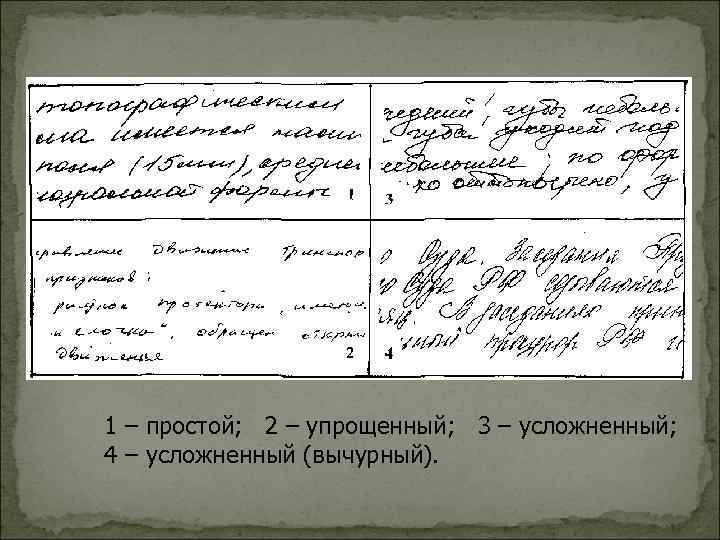 топографическим
ма имеется наси
поля (15мм), средне
формы 1
чедний, губы неболь-
губа уходит под
небольшие, по фор
хо оттопырено, у
3
правление движение транспор
признаков:
рисунок протектора, имею
и елочка", обращен откры
движения 2
о Суда. Заседания Пр
о Суда РФ созываются
В заседаниях прин
ный прокурор РФ и
4
1 – простой; 2 – упрощенный; 3 – усложненный;
4 – усложненный (вычурный).